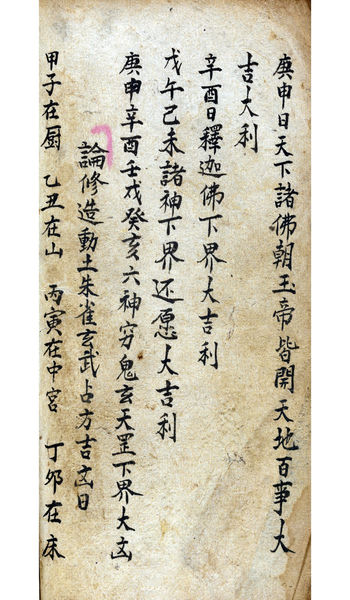 庚申日天下諸佛朝玉帝皆開天地百事大
吉大利
辛酉日釋迦佛下界大吉利
戊午己未諸神下界还愿大吉利
庚申辛酉壬戌癸亥六神穷鬼玄天罡下界大凶
論修造動土朱雀玄武占方吉凶日
甲子在厨 乙丑在山 丙寅在中宮 丁卯在床